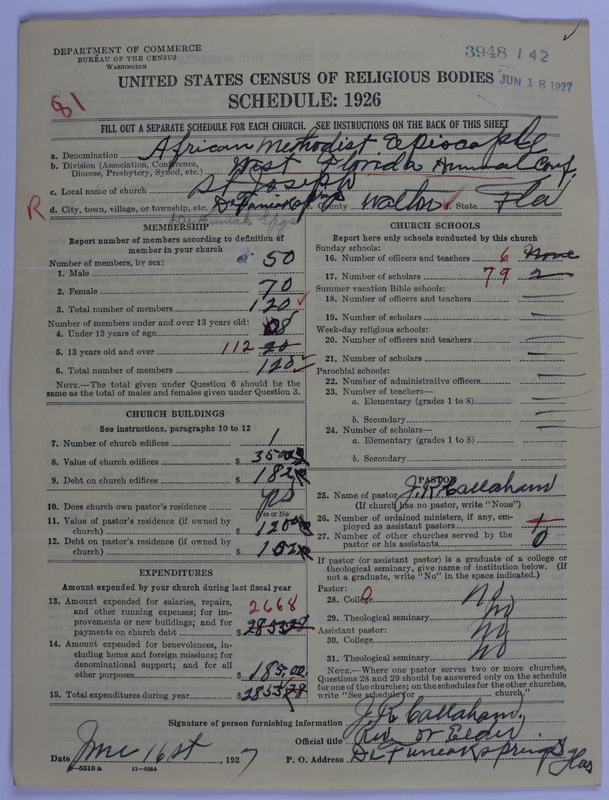 DEPARTMENT OF COMMERCE
BUREAU OF THE CENSUS
WASHINGTON
3948 142
UNITED STATES CENSUS OF RELIGIOUS BODIES JUN 18 1927
81
SCHEDULE: 1926
FILL OUT A SEPARATE SCHEDULE FOR EACH CHURCH. SEE INSTRUCTIONS ON THE BACK OF THIS SHEET
a. Denomination African Methodist Episcopal
b. Division (Association, Conference, Diocese, Presbytery, Synod, etc.) West Florida Annual Conf.
c. Local name of church St Joseph
R d. City, town, village, or township, etc. DeFuniak Springs County Walton State Fla
De Funiak Spgs
MEMBERSHIP
Report number of members according to definition of
member in your church
Number of members, by sex:
1. Male 50
2. Female 70
3. Total number of members 120
Number of members under and over 13 years old:
4. Under 13 years of age 08
5. 13 years old and over 112 20
6. Total number of members 120
NOTE.—The total given under Question 6 should be
same as the total of males and females given under Question 3.
CHURCH BUILDINGS
See instructions, paragraphs 10 to 12
7. Number of church edifices 1
8. Value of church edifices $ 3500
9. Debt on church edifices $ 182
10. Does church own pastor's residence yes
Yes or No
11. Value of pastor's residence (if owned by
church) $ 1200
12. Debt on pastor's residence (if owned by
church) $ 182
EXPENDITURES
Amount expended by your church during last fiscal year
13. Amount expended for salaries, repairs,
and other running expenses; for im-
provements or new buildings; and for
payments on church debt $ 2668 2853.28
14. Amount expended for benevolences, in-
cluding home and foreign missions; for
denominational support; and for all
other purposes $ 185.00
15. Total expenditures during year $ 2853.28
CHURCH SCHOOLS
Report here only schools conducted by this church
Sunday schools:
16. Number of officers and teachers 6 None
17. Number of scholars 79 2
Summer vacation Bible schools:
18. Number of officers and teachers
19. Number of scholars
Week-day religious schools:
20. Number of officers and teachers
21. Number of scholars
Parochial schools:
22. Number of administrative officers
23. Number of teachers—
a. Elementary (grades 1 to 8)
b. Secondary
24. Number of scholars—
a. Elementary (grades 1 to 8)
b. Secondary
PASTOR
25. Name of pastor J. R. Callaham
(If church has no pastor, write "None")
26. Number of ordained ministers, if any, em-
ployed as assistant pastors 1
27. Number of other churches served by the
pastor or his assistants 0
If pastor (or assistant pastor) is a graduate of a college or
theological seminary, give name of institution below. (If
not a graduate, write "No" in the space indicated.)
Pastor:
28. College 0 No
29. Theological seminary No
Assistant pastor:
30. College No
31. Theological seminary No
NOTE.—Where one pastor serves two or more churches,
Questions 28 and 29 should be answered only on the schedule
for one of the churches; on the schedules for the other churches,
write "See schedule for church."
Signature of person furnishing information J. R. Callaham
Official title Rev. or Elder
Date June 16st, 1927 P. O. Address De Funiak Springs Fla
11—9054